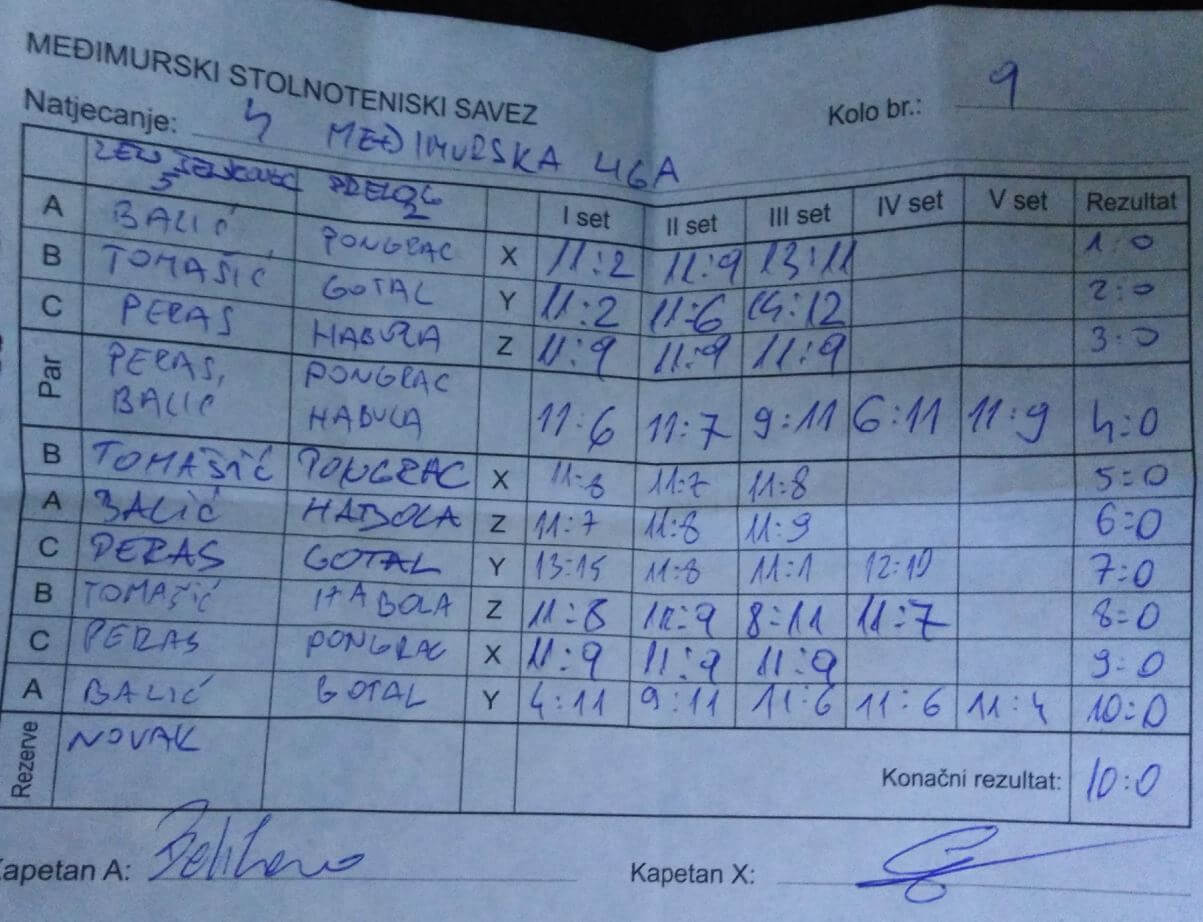 MEĐIMURSKI STOLNOTENISKI SAVEZ
Kolo br.: 9
Natjecanje: 4 MEĐIMURSKA LIGA
PRELOG 2
I set II set III set IV set V set Rezultat
A BALIĆ PONGRAC X 11:2 11:9 13:11 1:0
B TOMAŠIĆ GOTAL Y 11:2 11:6 14:12 2:0
C PERAS HABULA Z 11:9 11:9 11:9 3:0
Par PERAS, PONGRAC
BALIĆ HABULA 11:6 11:7 9:11 6:11 11:9 4:0
B TOMAŠIĆ PONGRAC X 11:8 11:7 11:8 5:0
A BALIĆ HABOLA Z 11:7 11:8 11:9 6:0
C PERAS GOTAL Y 13:15 11:8 11:1 12:10 7:0
B TOMAŠIĆ HABOLA Z 11:8 11:9 8:11 11:7 8:0
C PERAS PONGRAC X 11:9 11:9 11:9 9:0
A BALIĆ GOTAL Y 4:11 9:11 11:6 11:6 11:4 10:0
Rezerve NOVAK
Konačni rezultat: 10:0
Kapetan A:
Kapetan X: